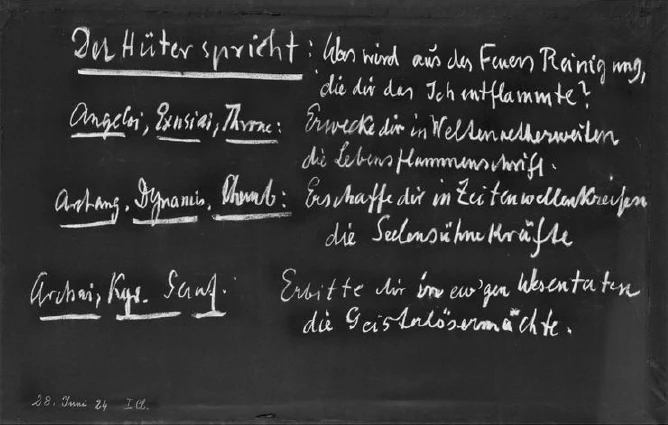 Der Hüter spricht: Was wird aus des Feuers Reinigung,
die dir das Ich entflammte?
Angeloi, Exusiai, Throne: Erwecke dir in Weltenaetherweiten
die Lebensflammenschrift.
Archang. Dynamis, Cherub: Erschaffe dir in Zeitenwellenkreisen
die Seelensühnekräfte
Archai, Kyr. Seraf. Erbitte dir in ew'gen Wesentaten
die Geisterlösermächte.
28. Juni 24 I.Cl.